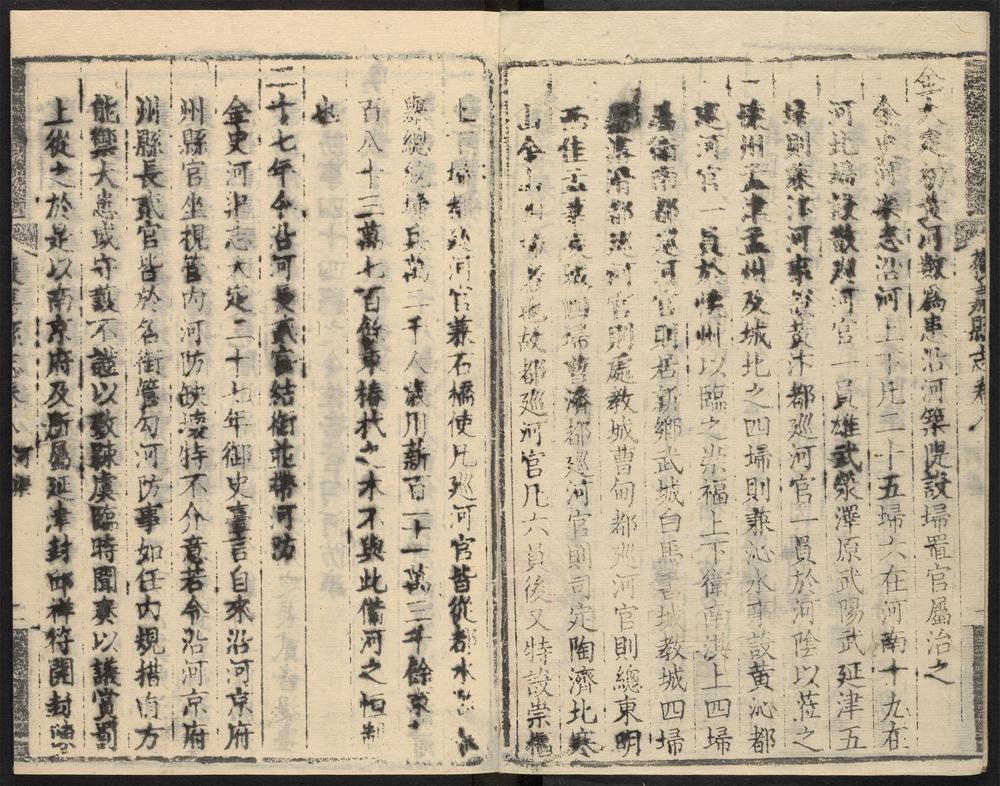 金大定初黃河數為患沿河築隄設埽置官屬治之
金史河渠志沿河上下凡二十五埽六在河南十九在
河北埽設散巡河官一員雄武滎澤原武陽武延津五
埽則兼汴河事設黃汴都巡河官一員於河陰以蒞之
懷州孟津孟州及城北之四埽則兼沁水事設黃沁都
巡河官一員於懷州以臨之崇福上下衛南淇上四埽
屬衛南都巡河官則居新鄉武城白馬書城教城四埽
屬濬滑都巡河官則處教城曹甸都巡河官則總東明
西佳孟華凌城四埽曹濟都巡河官則司定陶濟北寒
山金山四埽者也故都巡河官凡六員後又特設崇福
上下埽都巡河官兼石橋使凡巡河官皆從都水
總統埽兵萬二千人歲用薪百一十一萬三千餘束
百八十三萬七百餘束樁杙之木不與此備河之恒制
也
二十七年令沿河長貳官結銜並帶河防
金史河渠志大定二十七年御史臺言自來沿河京府
州縣官坐視管內河防缺壞特不介意若令沿河京府
州縣長貳官皆於名銜管勾河防事如任內規措有方
能禦大患或守護不謹以致疎虞臨時聞奏以議賞罰
上從之於是以南京府及所屬延津封邱祥符開封陳
縣志卷八